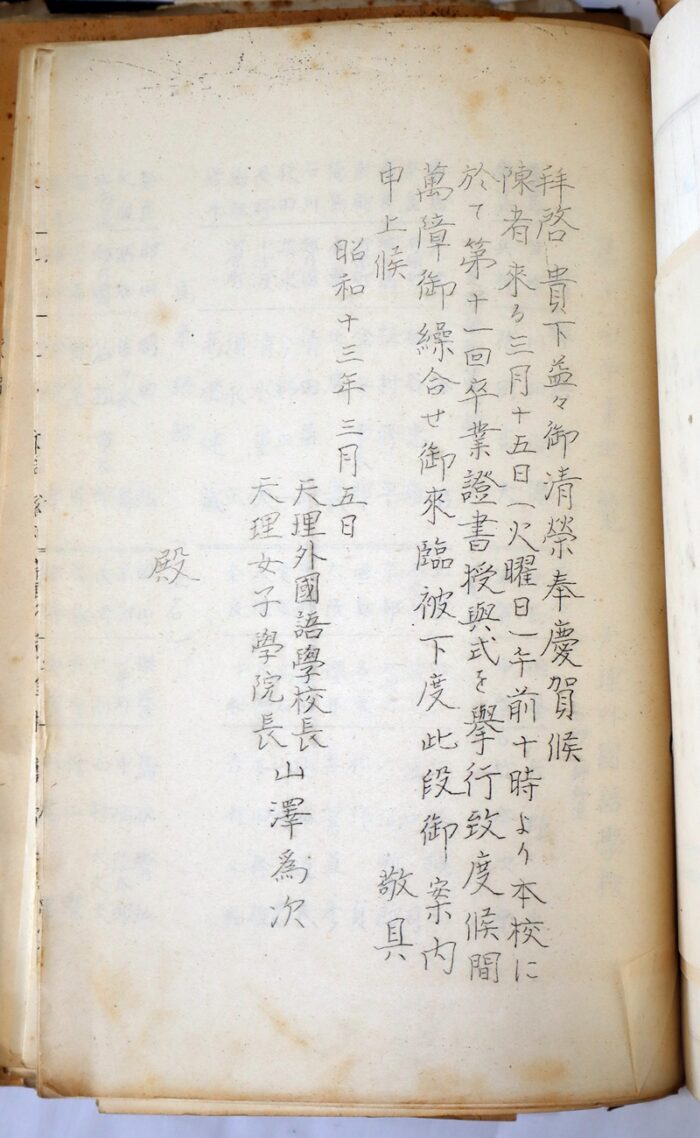 拜啓 貴下益々御清榮奉慶賀候
陳者來る三月十五日(火曜日)午前十時より本校に
於て第十一回卒業證書授與式を擧行致度候間
萬障御繰合せ御來臨被下度此段御案内
申上候 敬具
昭和十三年三月五日
天理外國語學校長
天理女子學院長
山澤爲次
殿